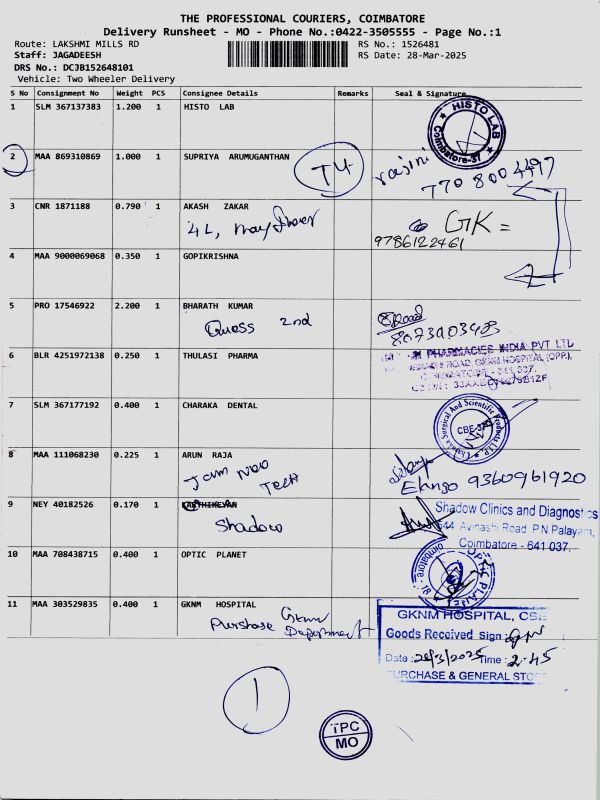 THE PROFESSIONAL COURIERS, COIMBATORE
Delivery Runsheet - MO - Phone No.:0422-3505555 - Page No.:1
Route: LAKSHMI MILLS RD
RS No.: 1526481
Staff: JAGADEESH
RS Date: 28-Mar-2025
DRS No.: DCJB152648101
Vehicle: Two Wheeler Delivery
S No Consignment No Weight PCS Consignee Details Remarks Seal & Signature
1 SLM 367137383 1.200 1 HISTO LAB
HISTO LAB
Coimbatore-37
2 MAA 869310869 1.000 1 SUPRIYA ARUMUGANTHAN
T4
rajini
770 800 4497
3 CNR 1871188 0.790 1 AKASH ZAKAR
4L,
GK =
9786122461
4 MAA 9000069068 0.350 1 GOPIKRISHNA
5 PRO 17546922 2.200 1 BHARATH KUMAR
Guess 2nd
6 BLR 4251972138 0.250 1 THULASI PHARMA
PHARMACIES INDIA PVT LTD
ROAD, GKNM HOSPITAL (OPP.),
COIMBATORE - 641 037.
7 SLM 367177192 0.400 1 CHARAKA DENTAL
Surgical And Scientific
CBE-37
8 MAA 111068230 0.225 1 ARUN RAJA
Jam Noo
Tech
Elango 9360961920
9 NEY 40182526 0.170 1 KARTHIKEYAN
Shadow
Shadow Clinics and Diagnostics
544 Avinashi Road, P.N Palayam,
Coimbatore - 641 037.
10 MAA 708438715 0.400 1 OPTIC PLANET
OPTIC PLANET
Coimbatore - 18
11 MAA 303529835 0.400 1 GKNM HOSPITAL
Purshase GKNM
Department
GKNM HOSPITAL, CBE
Goods Received Sign :
Date : 28/3/2025 Time : 2.45
PURCHASE & GENERAL STORE
1
TPC
MO